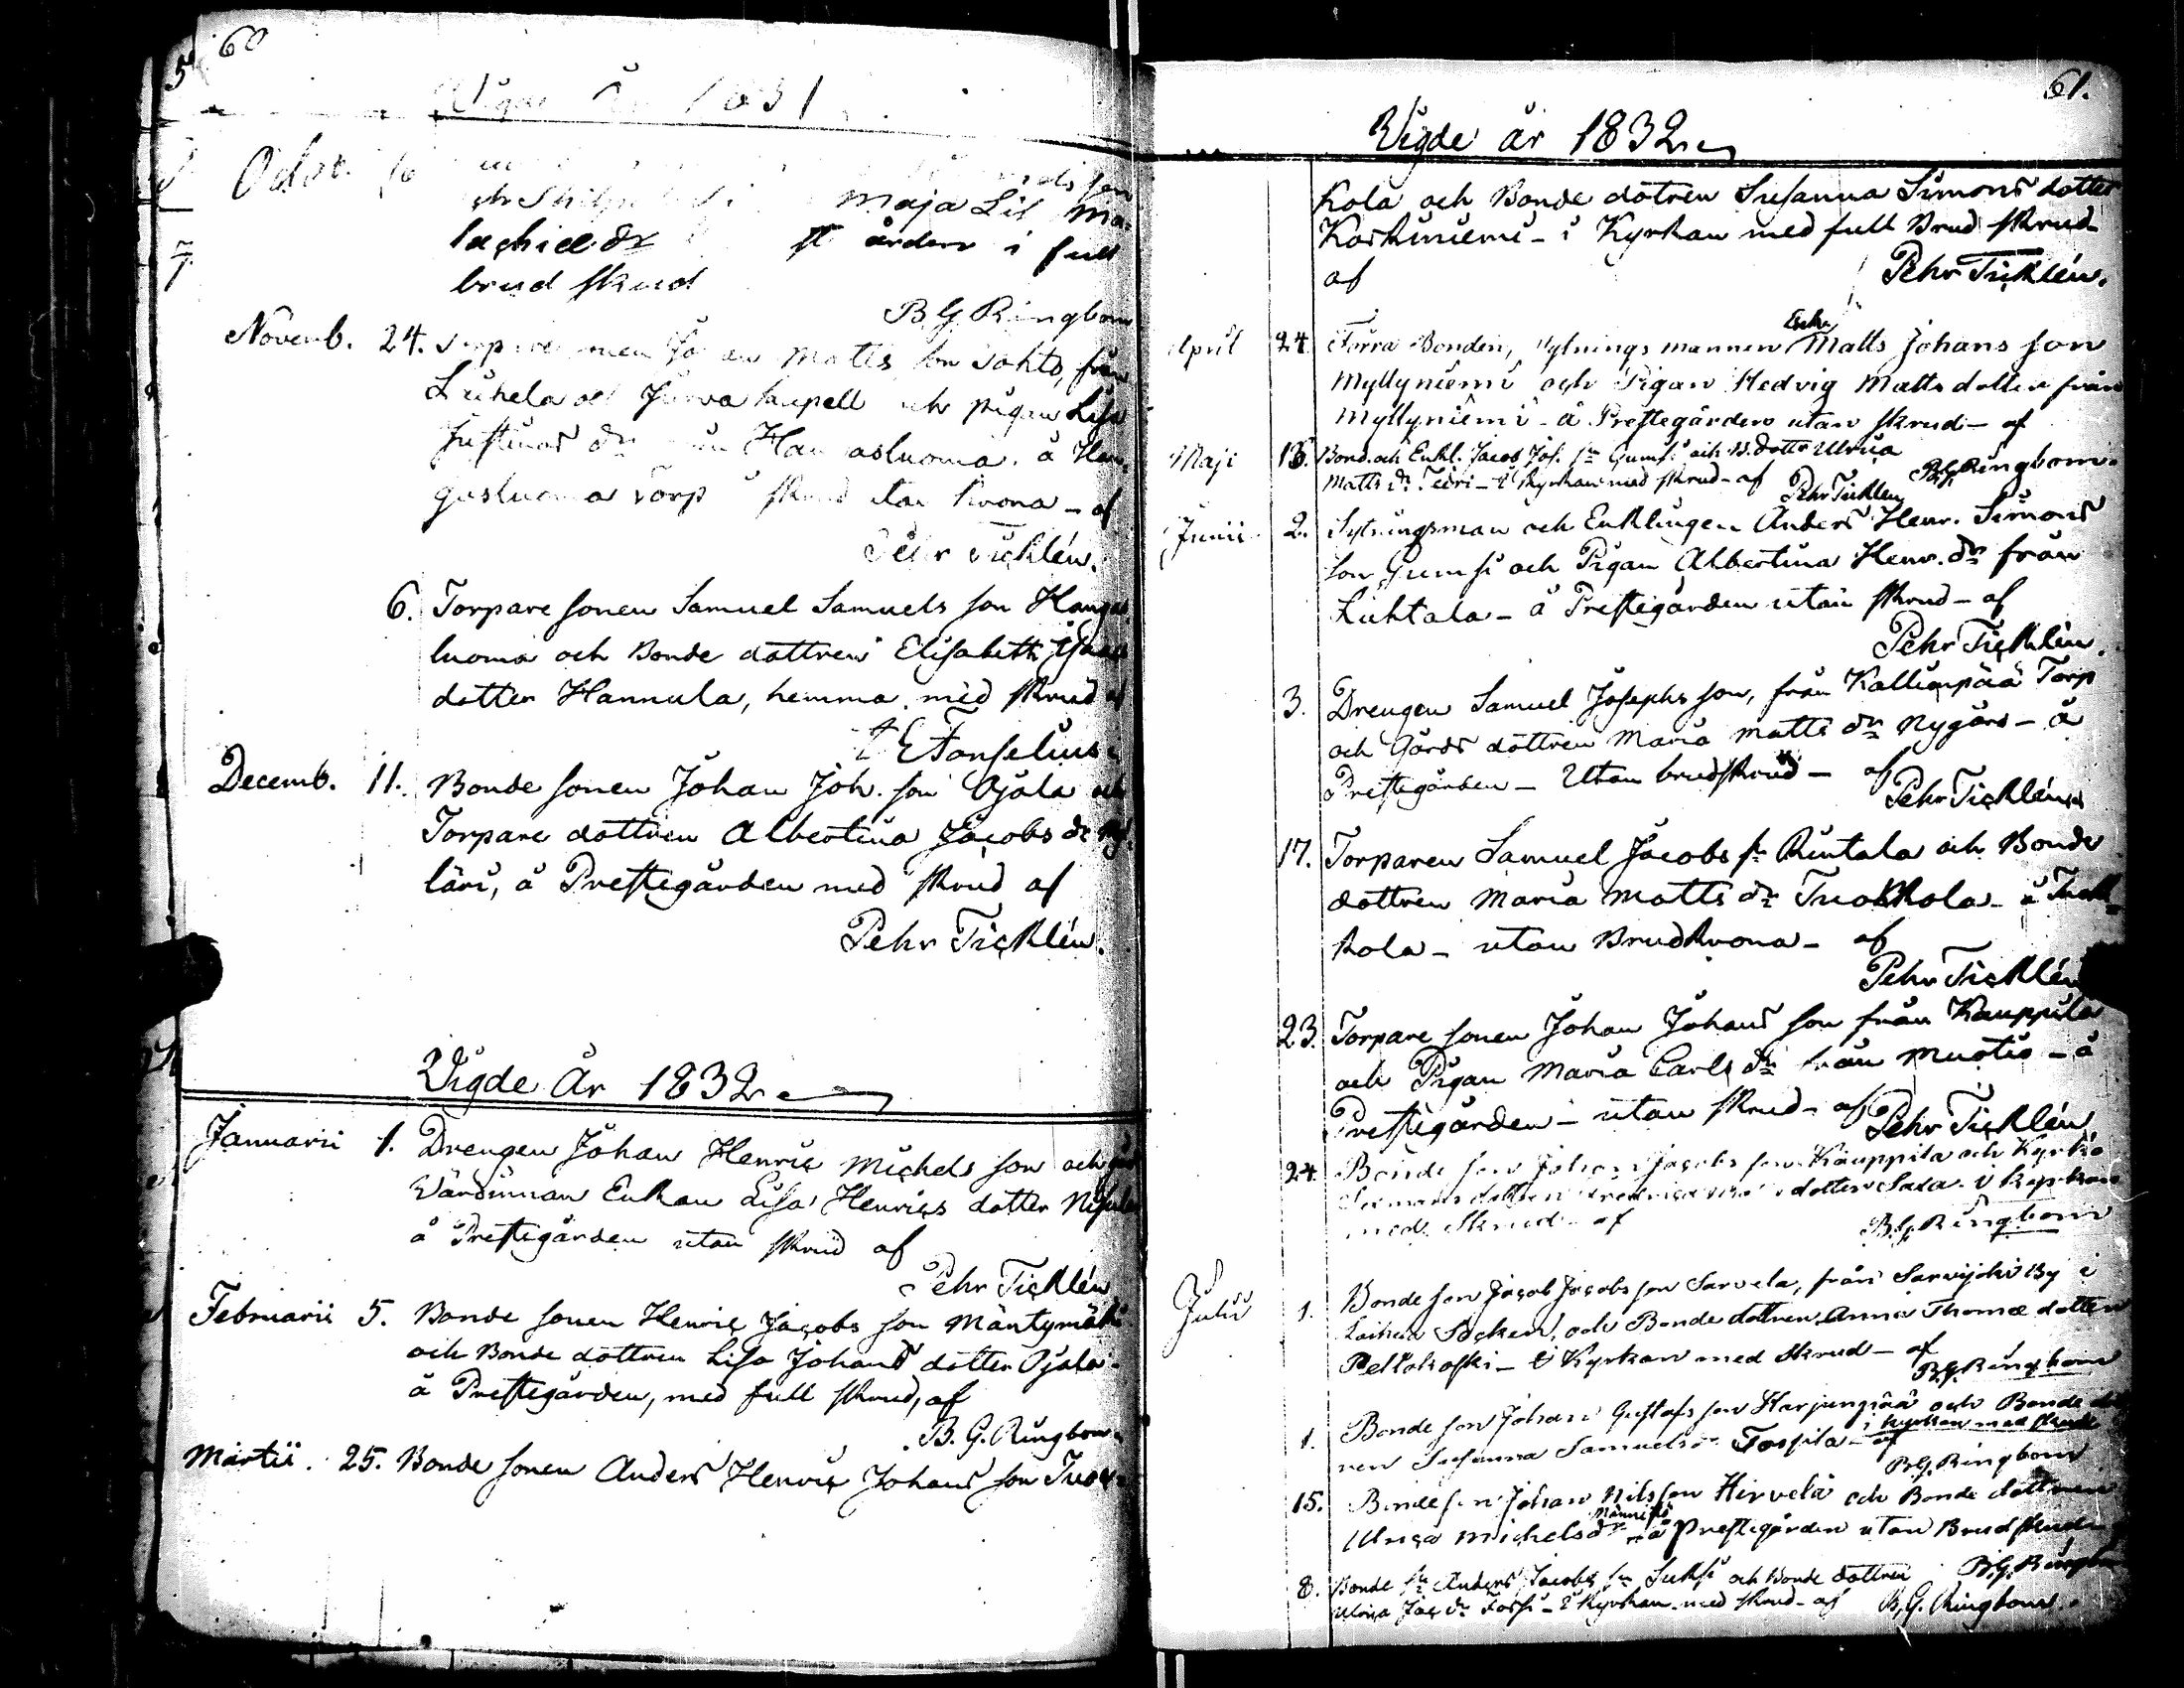 60
Vigde År 1831
Octob. 16
Maja Lis Ma-
lachiæ dr i full
brud skrud
B G Ringbom
Novemb. 24. Matts son Tohto, från
Luhela och Jurva Capell och pigan Lisa
Justinas dr från Hangasluoma. å Han-
gasluoma Torp i skrud utan krona - af
Pehr Ticklén.
6. Torpare sonen Samuel Samuels son Hangas
luoma och Bonde dottren Elisabeth Isaacs
dotter Hannula, hemma, med skrud af
E Forselius
Decemb. 11. Bonde sonen Johan Joh. son Ojala och
Torpare dottren Albertina Jacobs dr My
läri, å Prestegården med skrud af
Pehr Ticklén.
Vigde År 1832
Januarii 1. Drengen Johan Henric Michels son och
Värdinnan Enkan Lisa Henrics dotter Nisula
å Prestegården utan skrud af
Pehr Ticklén
Februarii 5. Bonde sonen Henric Jacobs son Mäntymäki
och Bonde dottren Lisa Johans dotter Ojala
å Prestegården, med full skrud, af
B. G. Ringbom
Martii. 25. Bonde sonen Anders Henric Johans son Tuok-
61.
Vigde år 1832
kola och Bonde dotren Susanna Simons dotter
Koskiniemi - i Kyrkan med full Brud skrud
af Pehr Ticklén.
April 24 Förra Bonden, Sytnings mannen Enkl. Matts Johans son
Myllyniemi och Pigan Hedvig Matts dotter från
Myllyniemi - å Prestegården utan skrud - af
B.G. Ringbom
Maji 13. Bond. och Enkl. Jacob Jos. sn Gumsi och B. dottr Ulrica
Matts dr Teiri - i Kyrkan med skrud - af Pehr Ticklen
Junii 2. Sytningsman och Enklingen Anders Henr. Simons
son Gumsi och Pigan Albertina Henr. dr från
Luhtala - å Prestegården utan skrud - af
Pehr Ticklén.
3. Drengen Samuel Josephs son, från Kallionpää Torp
och Gårds dottren Maria Matts dr Nygård - å
Prestegården - Utan brudskrud - af
Pehr Ticklén
17. Torparen Samuel Jacobs sn Rintala och Bonde
dottren Maria Matts dr Tuokkola - å Tuok-
kola - utan Brudkrona - af
Pehr Ticklén
23. Torpare sonen Johan Johans son från Kauppila
och Pigan Maria Carls dr från Mustio - å
Prestegården - utan skrud - af
Pehr Ticklén
24. Bonde son Johan Jacobs son Kauppila och Kyrko
dotter Sala i kyrkan
med Skrud - af
B.G. Ringbom
Julii 1. Bonde son Jacob Jacobs son Sarvela, från Sarvijoki By i
Laihela Socken, och Bonde dottren Anna Thomæ dotter
Peltokoski - i Kyrkan med Skrud - af
B.G. Ringbom
1. Bonde son Johan Gustafs son Harjunpää och Bonde dot
ren Susanna Samuels dr Tospila - i kyrkan med skrud
af B.G. Ringbom
15. Bonde son Johan Nils son Hirvelä och Bonde dottren
Ulrica Michels dr Männistö - å Prestegården utan Brudskrud
B.G. Ringbom
8. Bonde sn Anders Jacobs sn Luksi och Bonde dottren
Ulrica Jac. dr - i Kyrkan med skrud - af B.G. Ringbom.